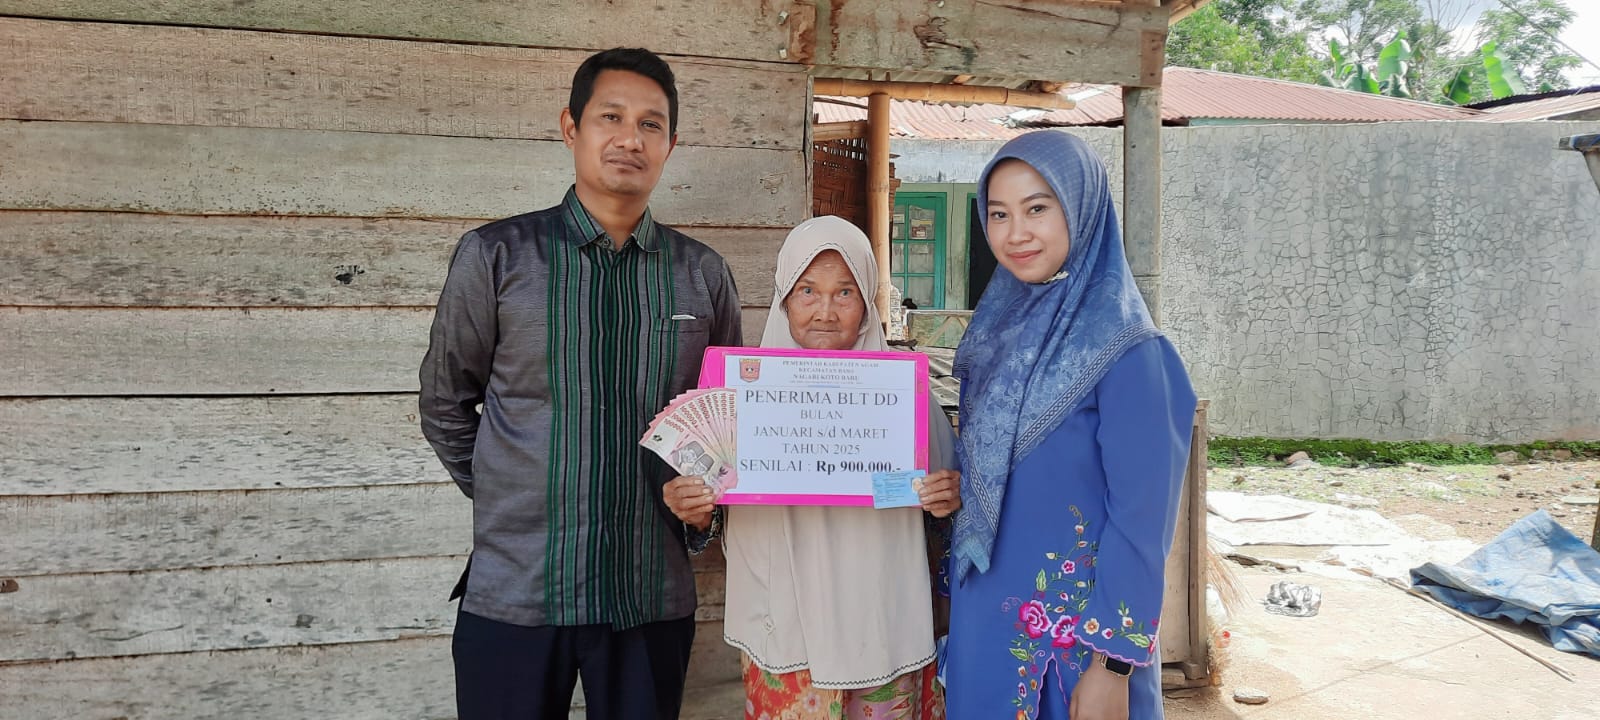 PEMERINTAH KABUPATEN AGAM
KECAMATAN BASO
NAGARI KOTO BARU
PENERIMA BLT DD
BULAN
JANUARI s/d MARET
TAHUN 2025
SENILAI : Rp 900.000,-
100000